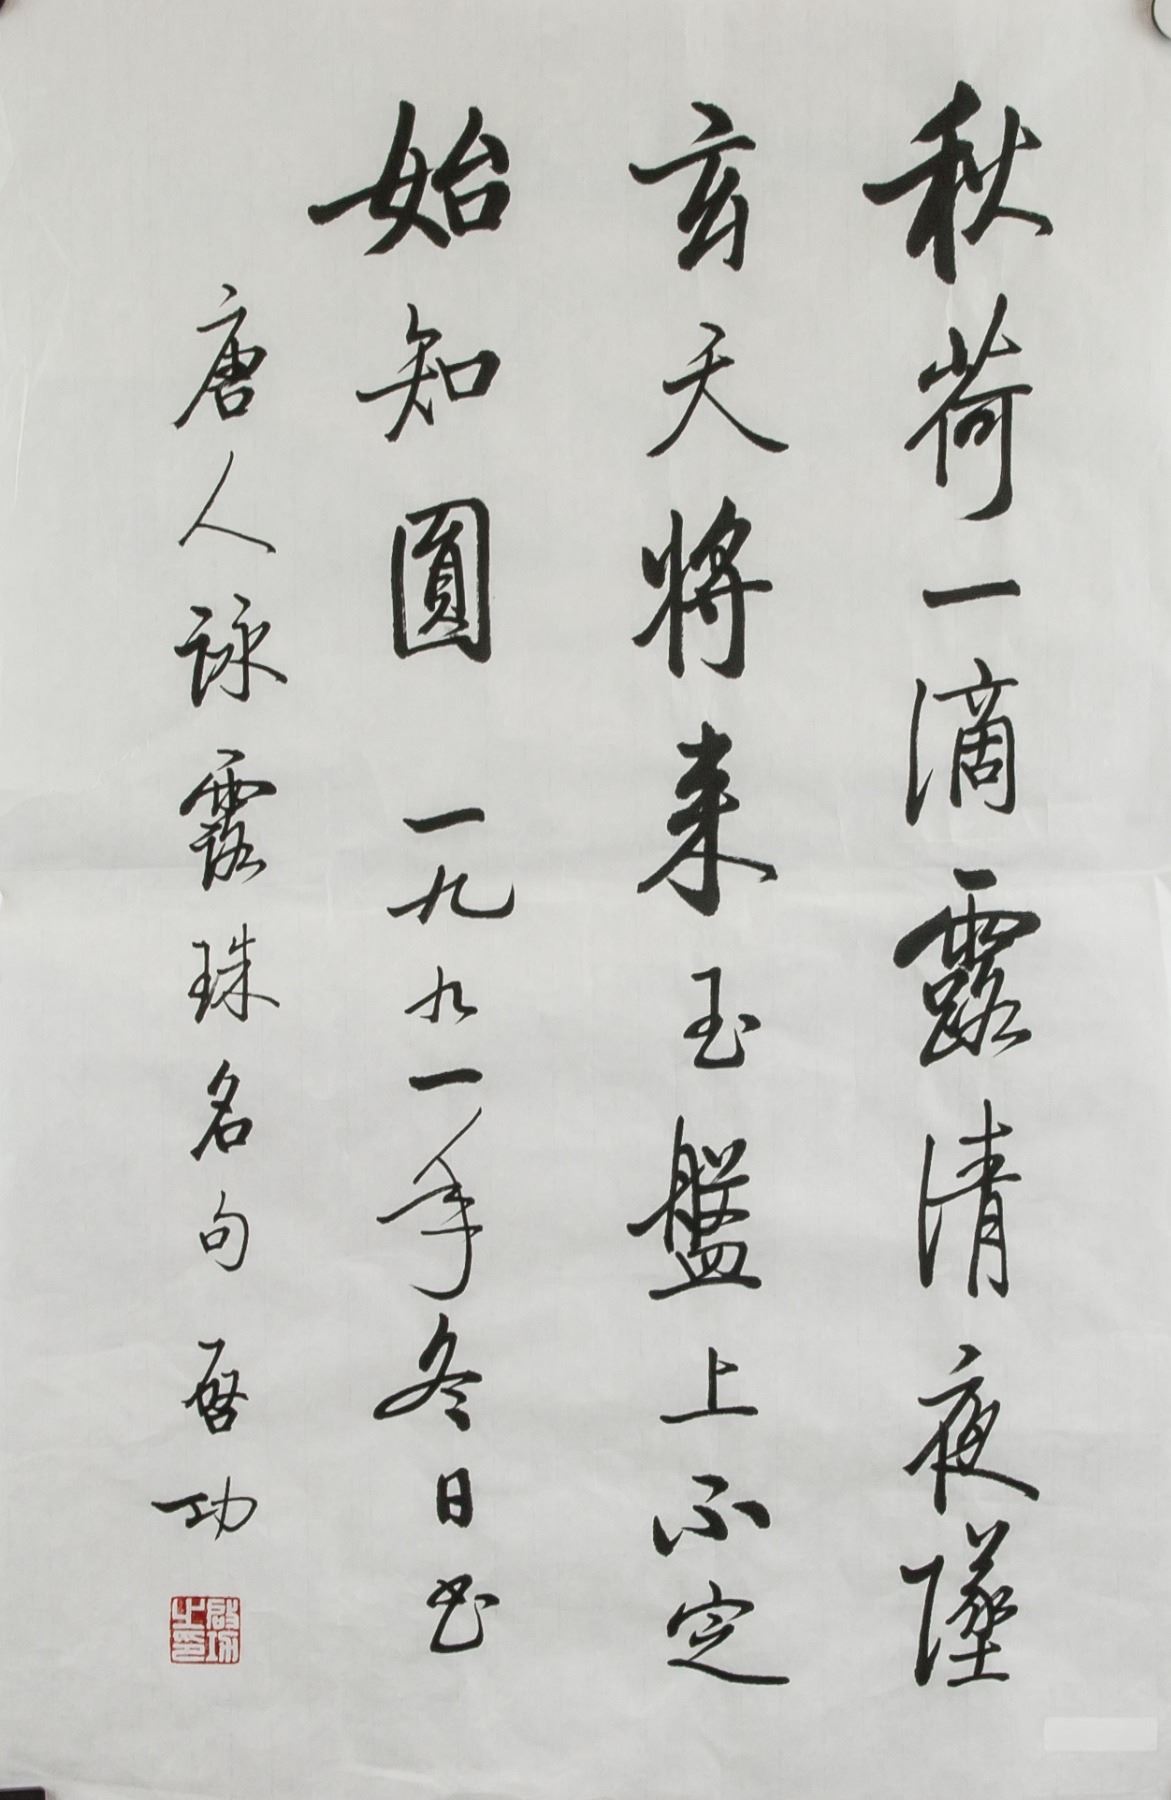 秋荷一滴露清夜墜
玄天將来玉盤上不定
始知圓 一九九一年冬日书
唐人詠露珠名句 啓功
啟功之印